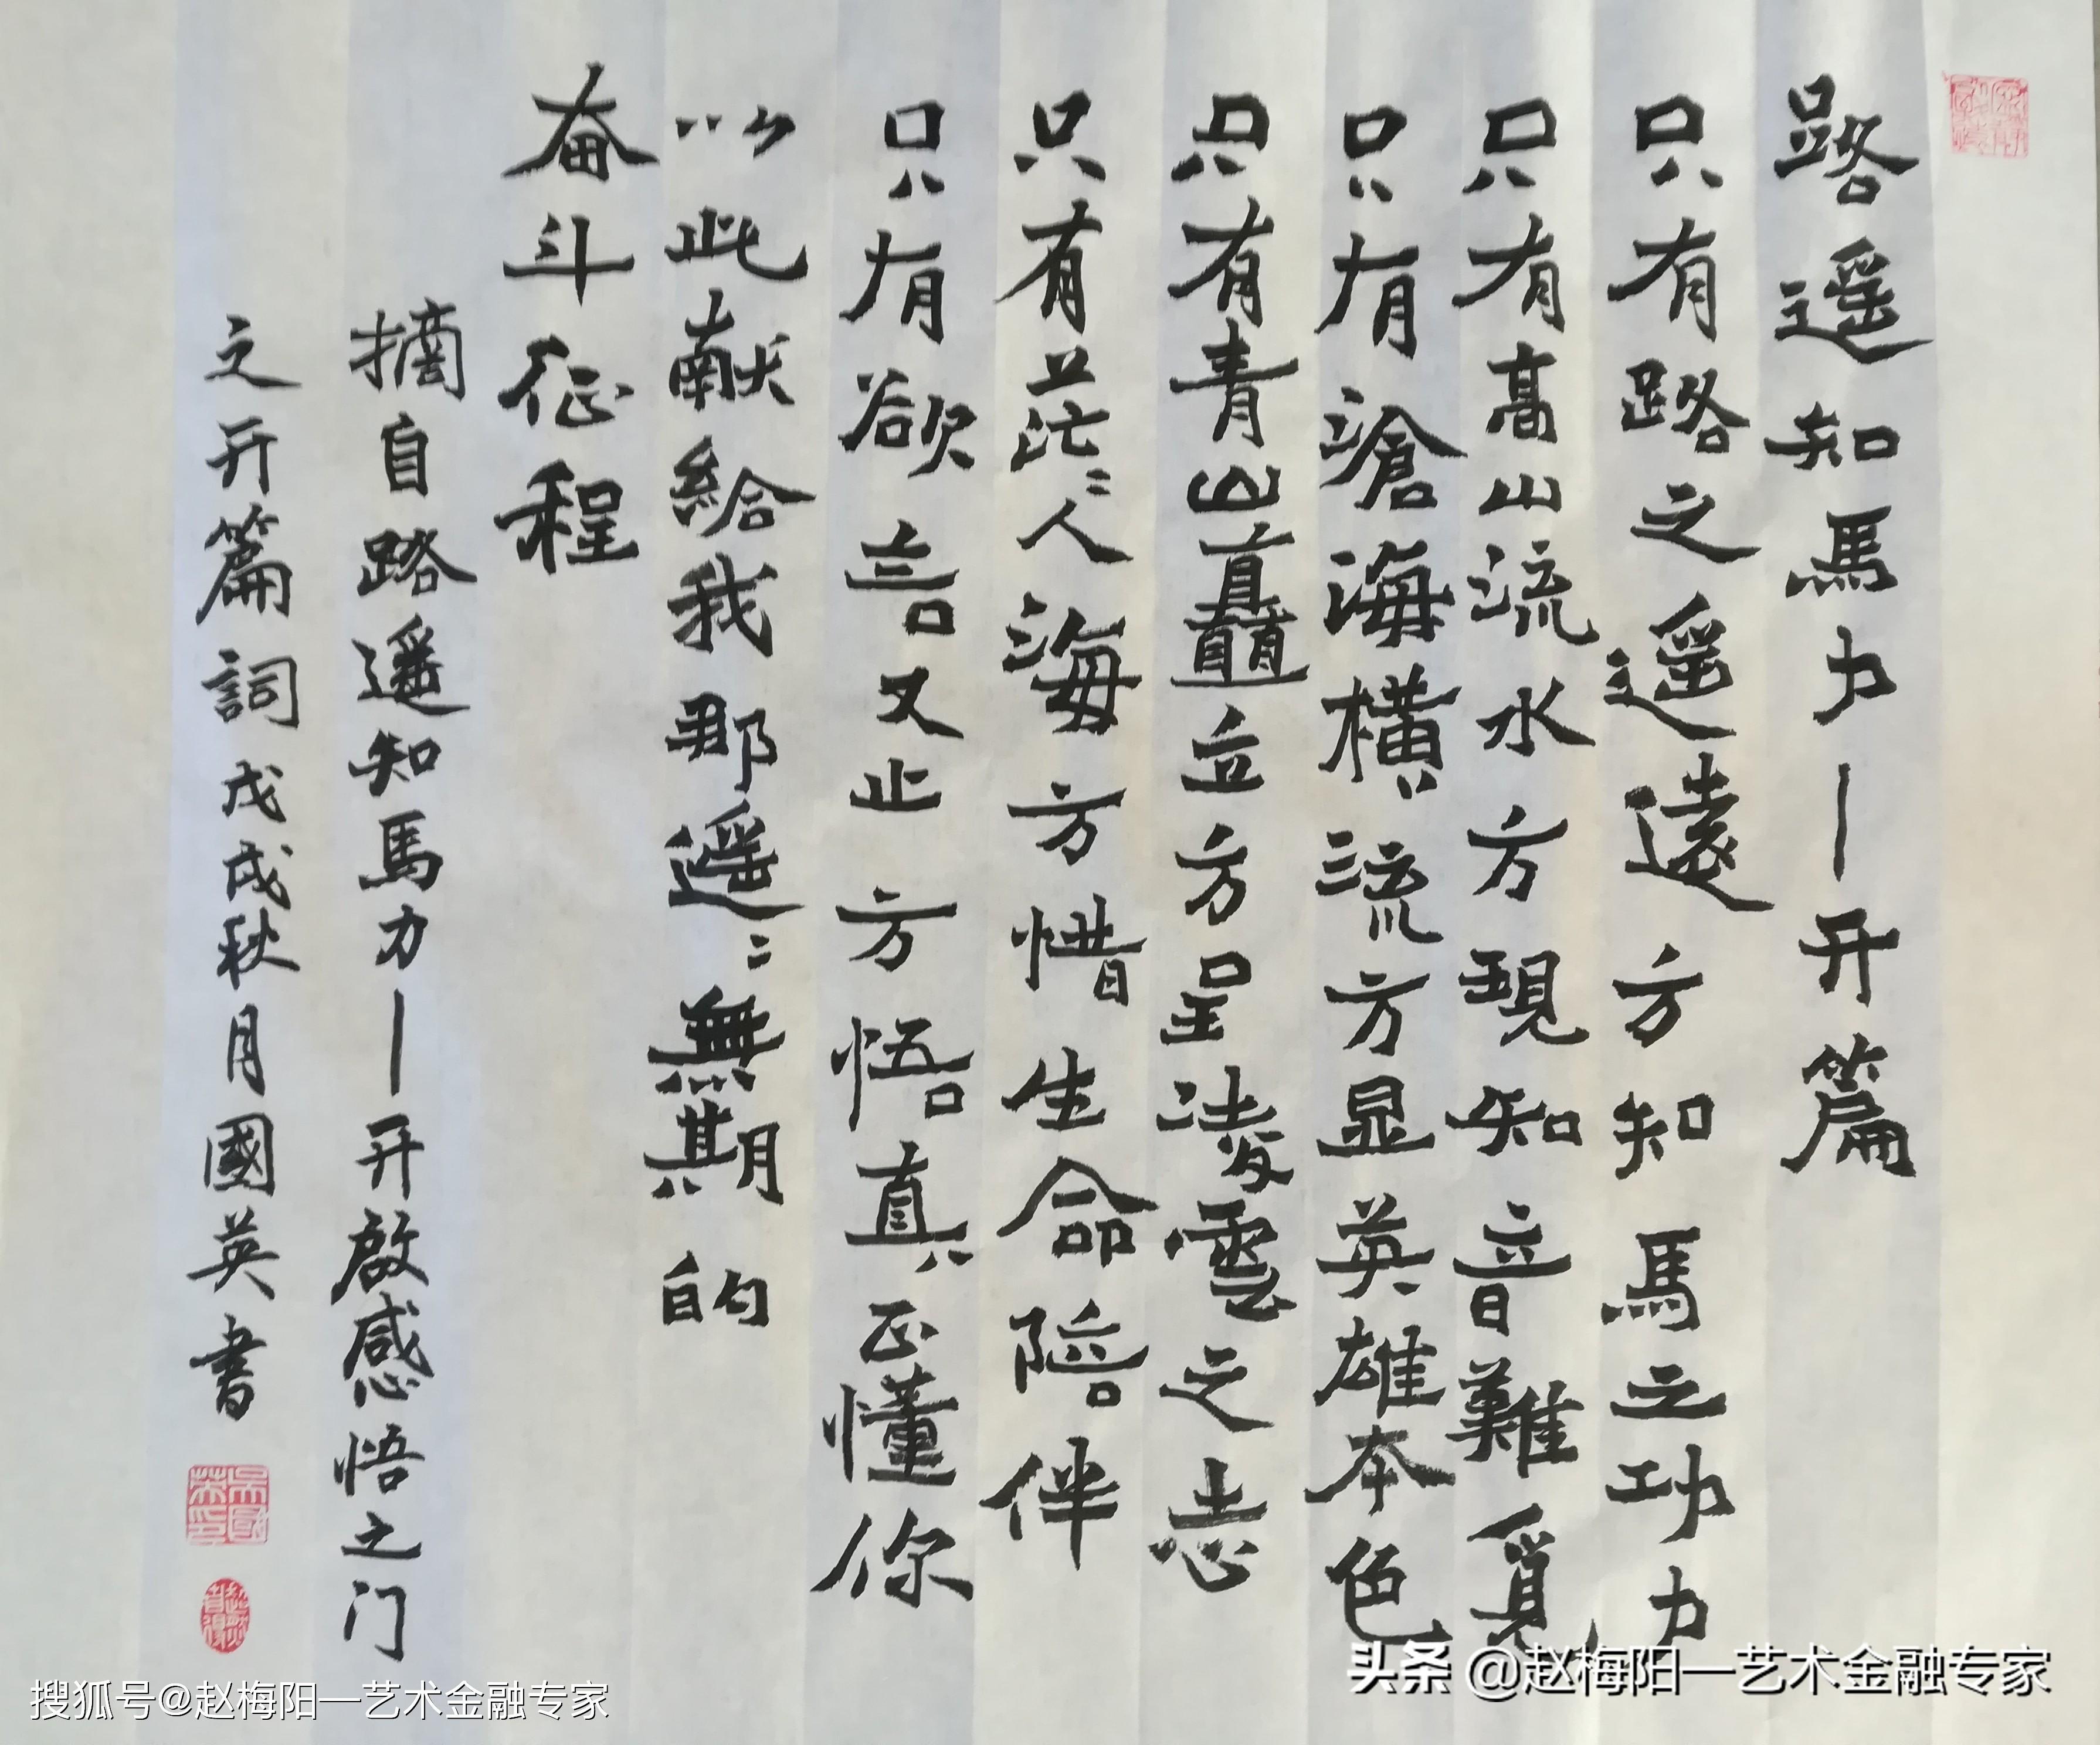 路遥知馬力—开篇
只有路之遥遠方知馬之功力
只有髙山流水方現知音難覓
只有滄海橫流方显英雄本色
只有青山矗立方呈淩雲之志
只有茫〻人海方惜生命陪伴
只有欲言又止方悟真正懂你
以此献給我那遥〻無期的
奋斗征程
摘自路遥知馬力—开啟感悟之门
之开篇詞戊戌秋月國英書
头条 @赵梅阳—艺术金融专家
搜狐号@赵梅阳—艺术金融专家